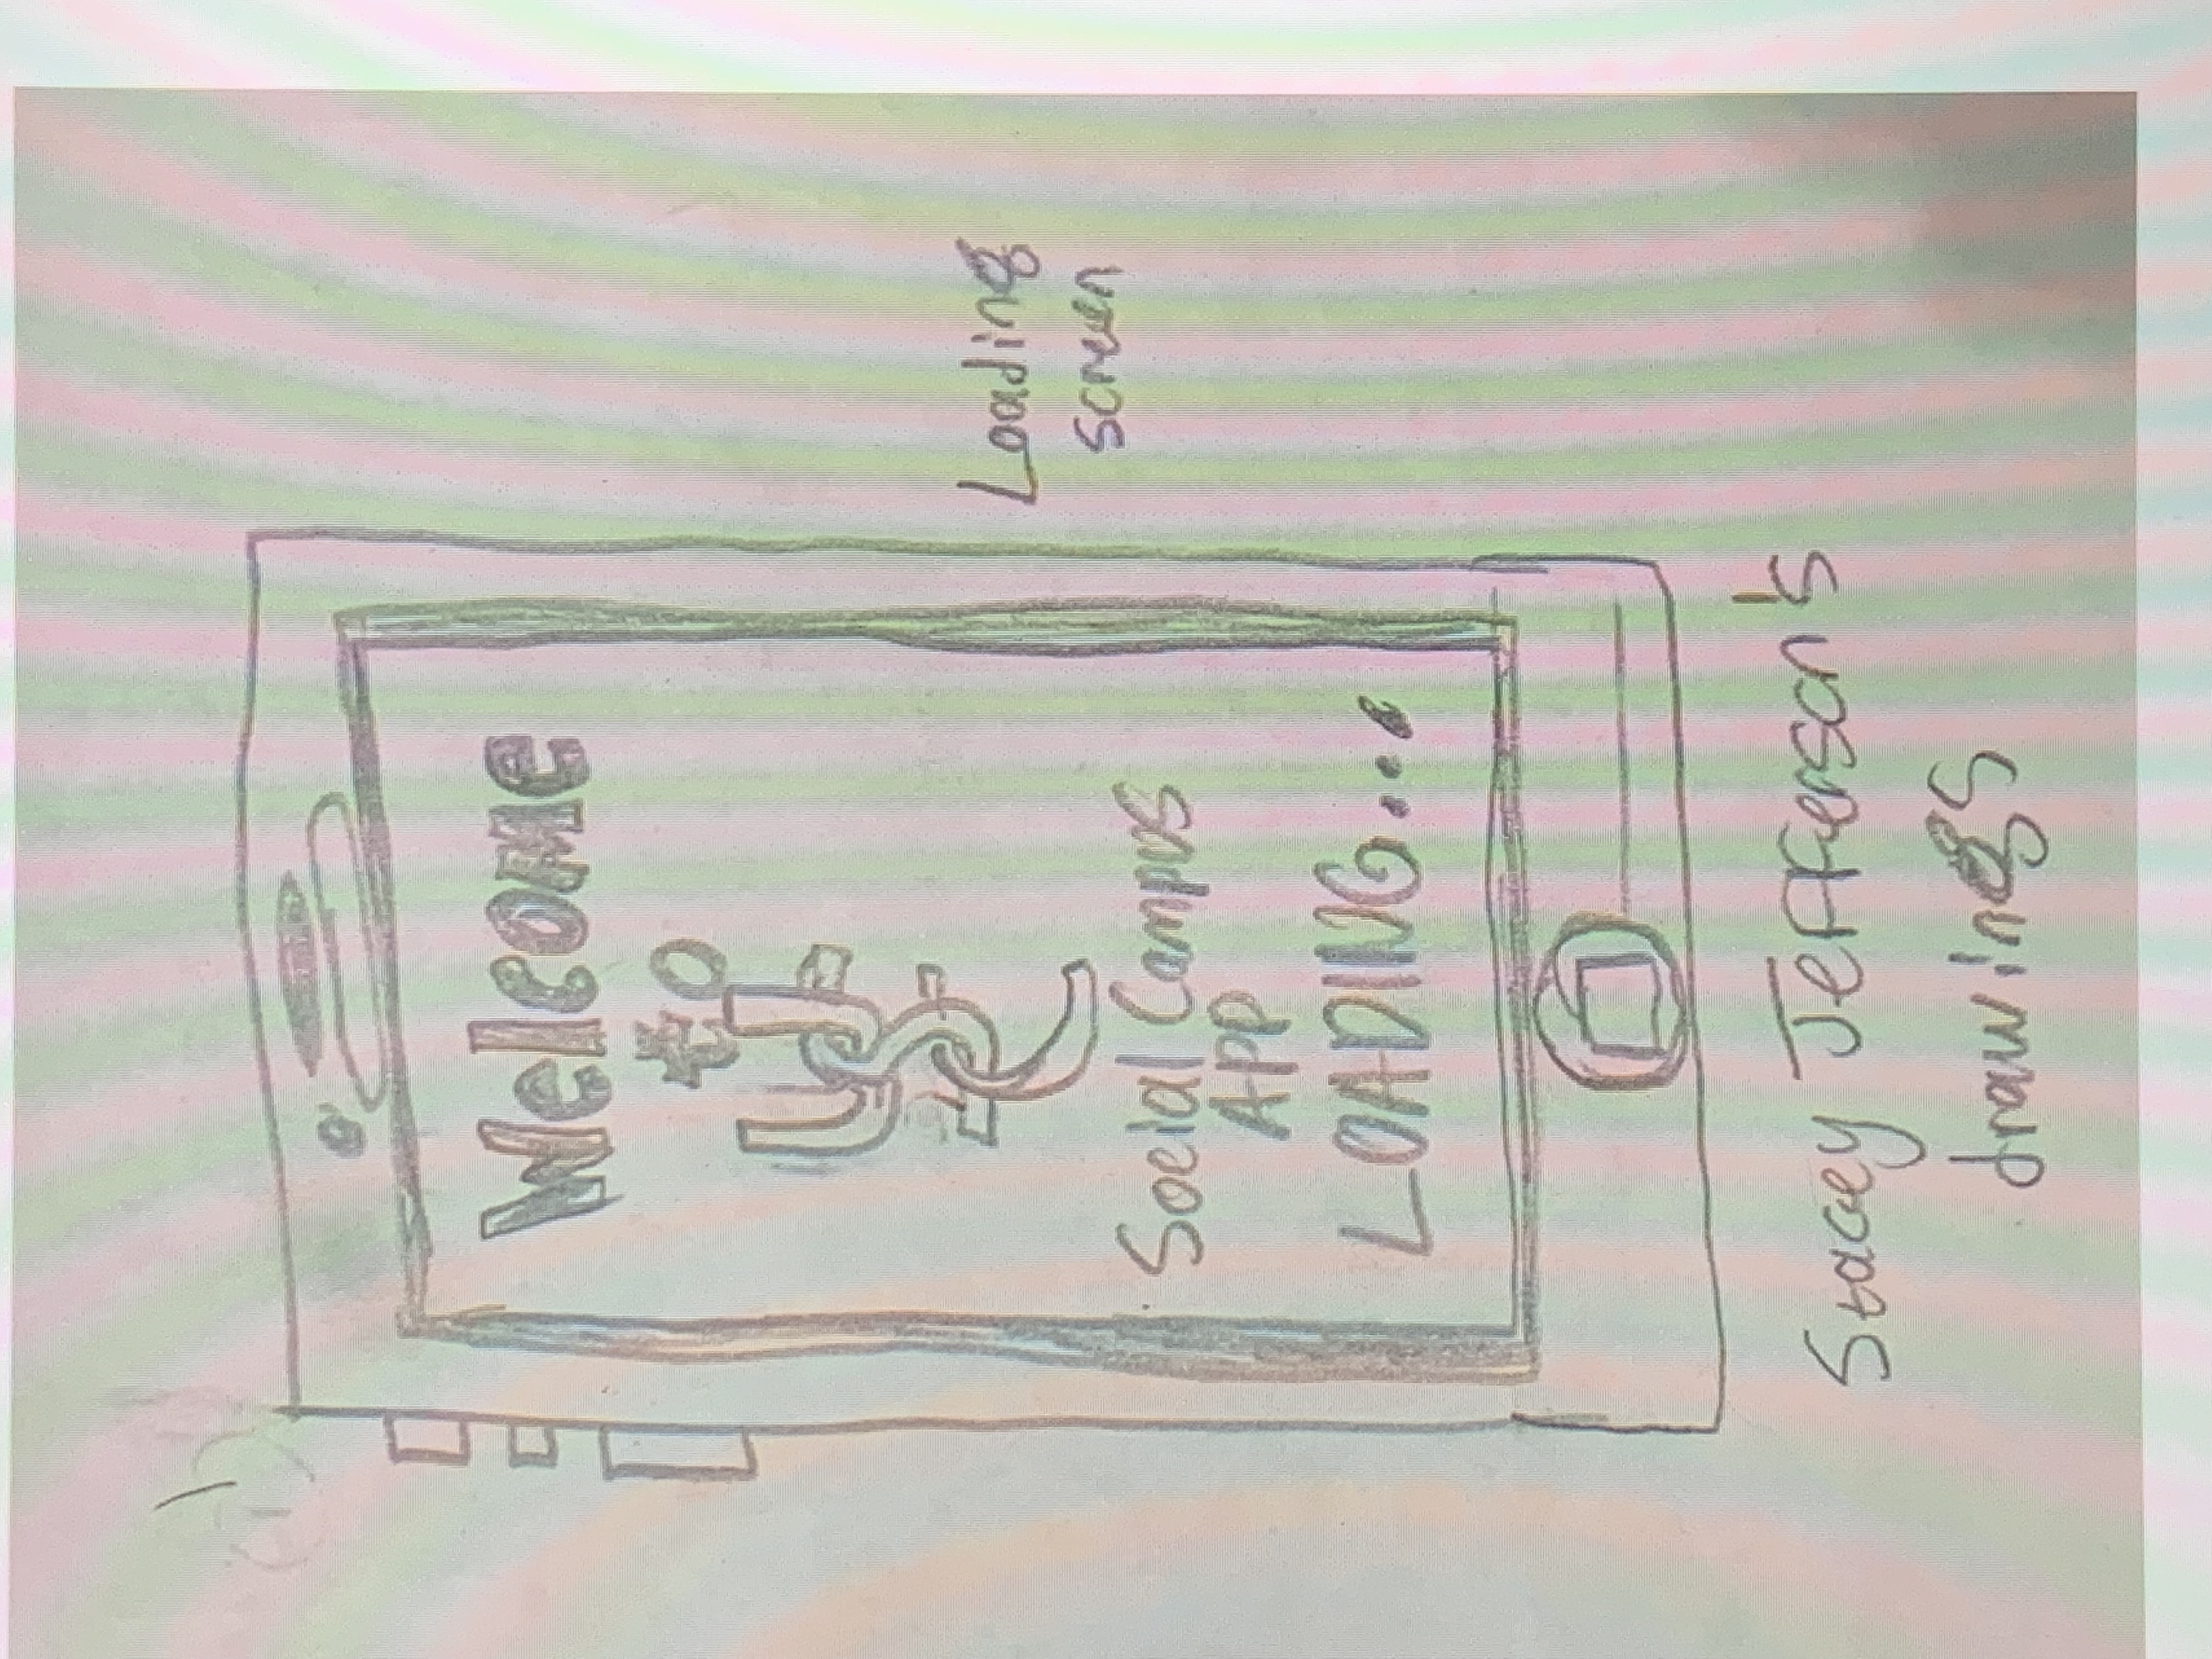 1
Welcome
to
USC
Social Campus
APP
LOADING...
Loading
screen
Stacey Jefferson's
drawings